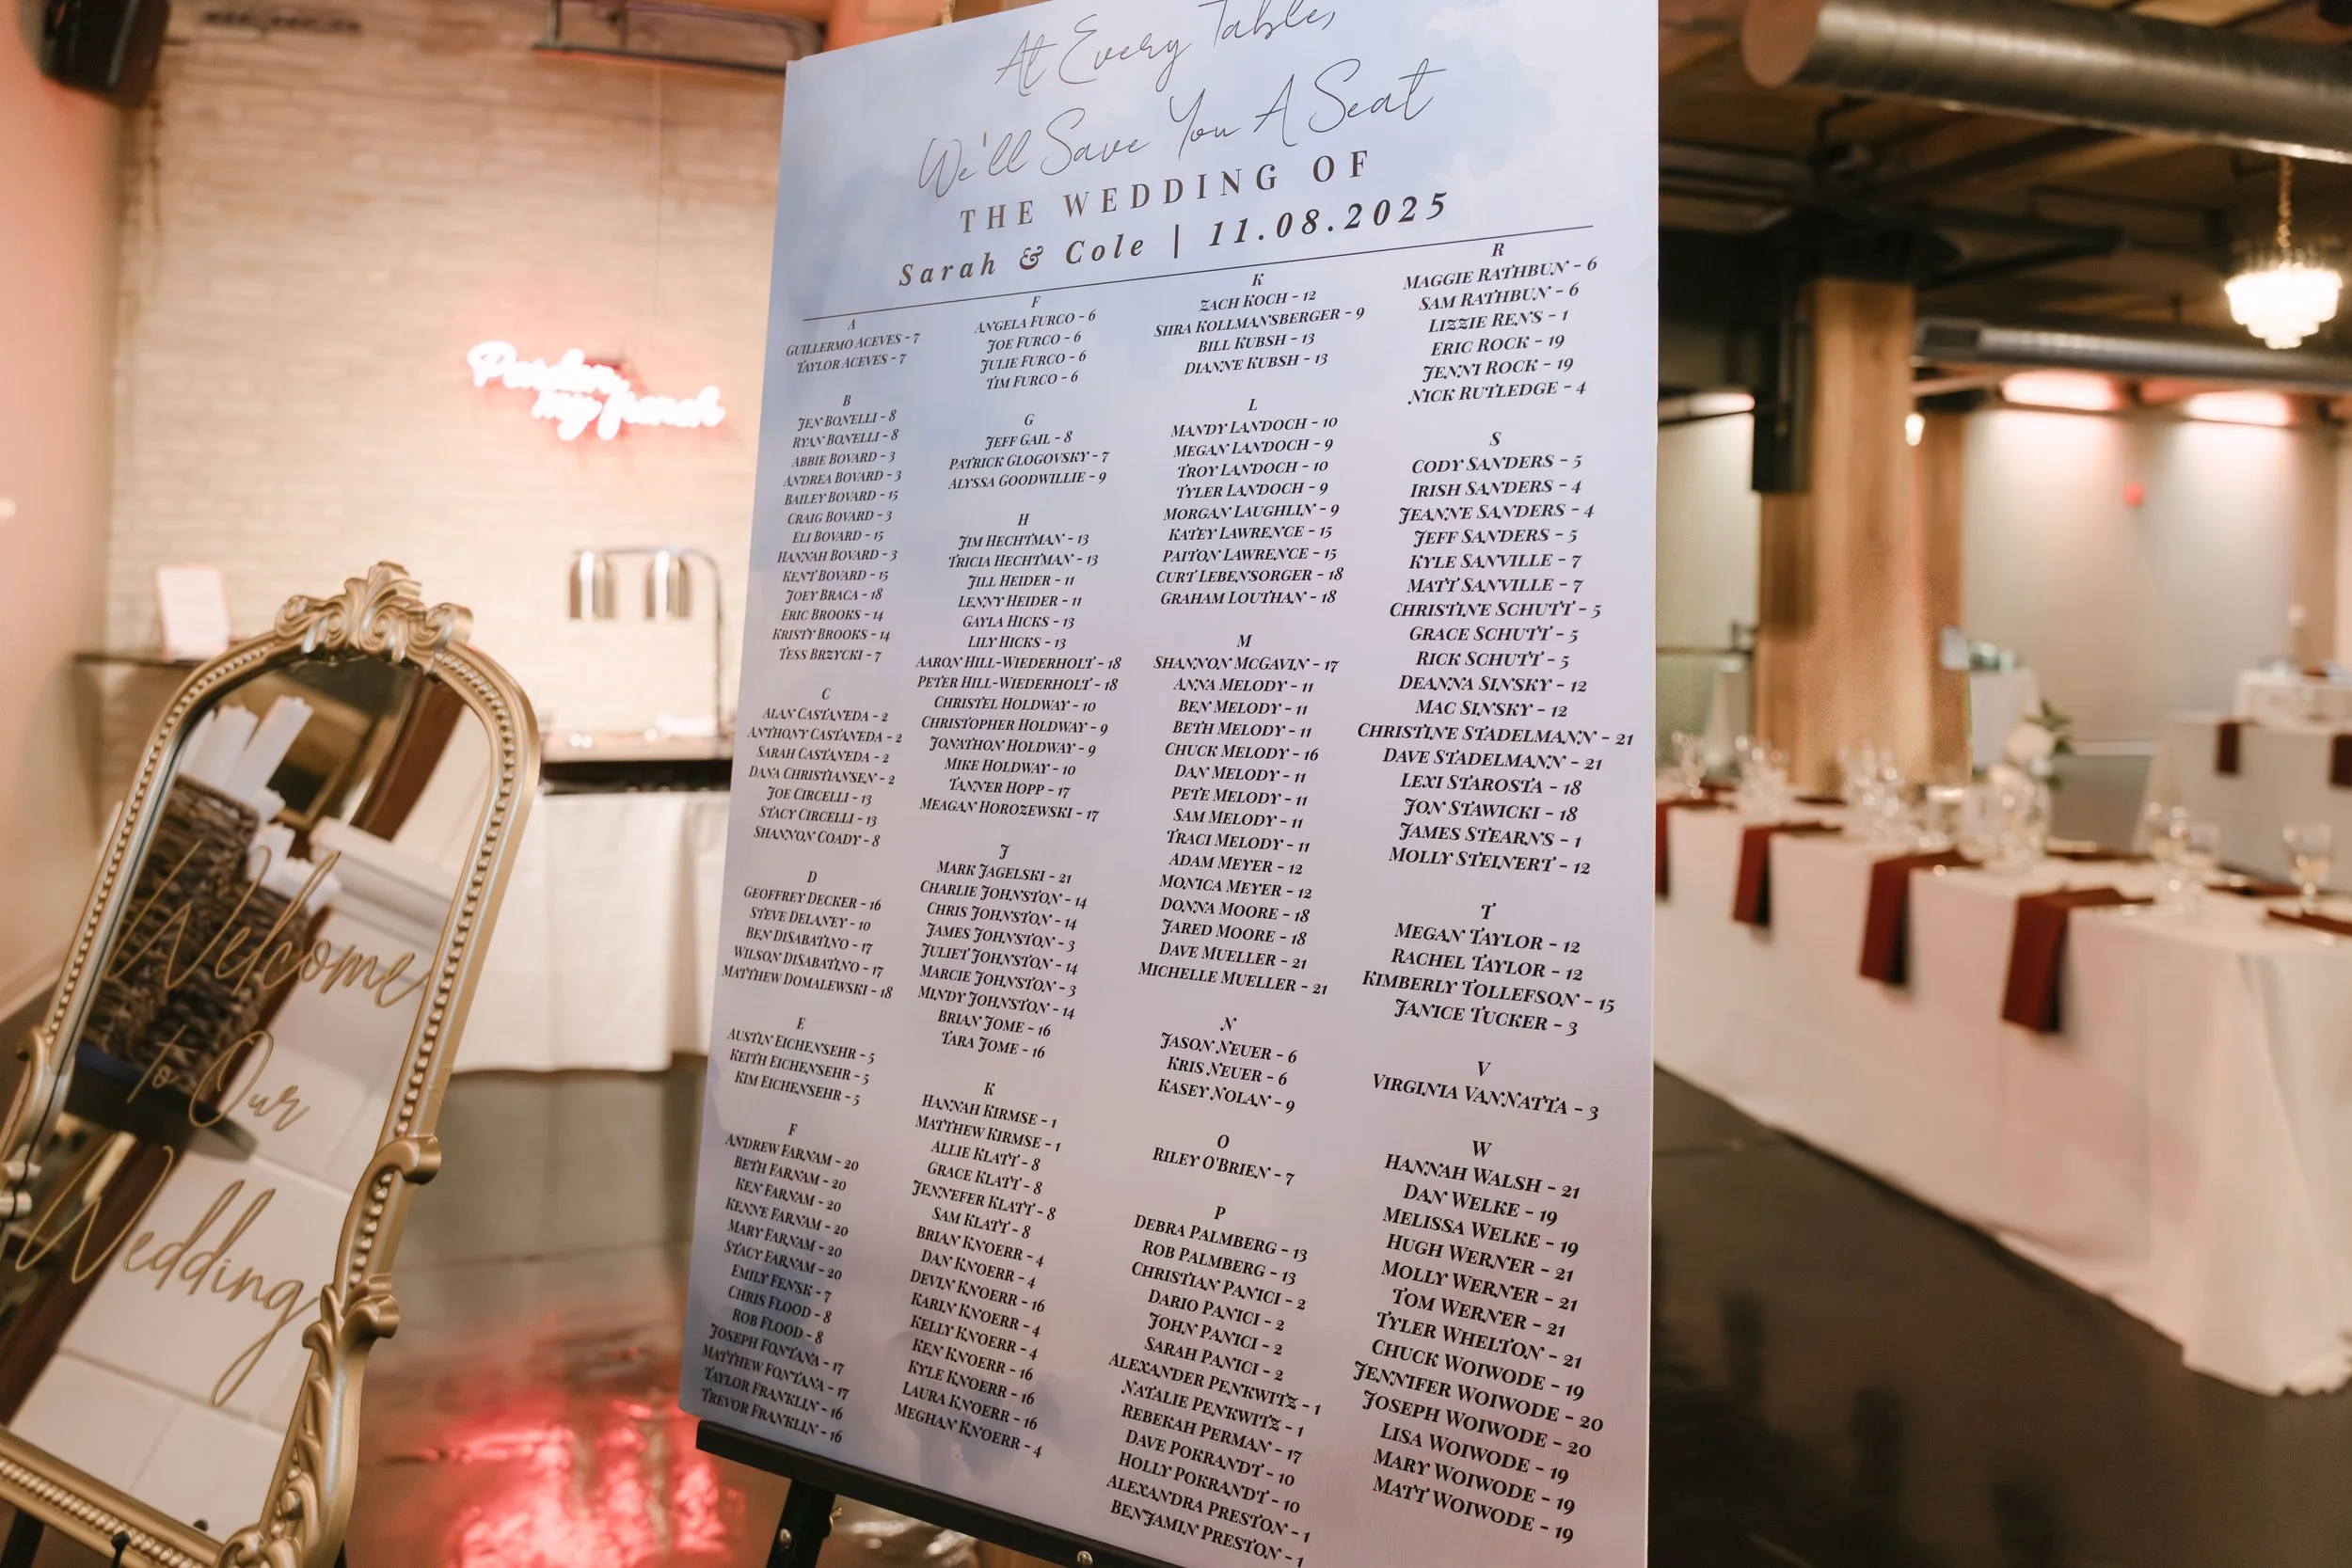 At Every Tables
We'll Save You A Seat
THE WEDDING OF
Sarah & Cole | 11.08.2025
A
GUILLERMO ACEVES - 7
TAYLOR ACEVES - 7
B
JEN BONELLI - 8
RYAN BONELLI - 8
ABBIE BOVARD - 3
ANDREA BOVARD - 3
BAILEY BOVARD - 15
CRAIG BOVARD - 3
ELI BOVARD - 15
HANNAH BOVARD - 3
KENT BOVARD - 15
JOEY BRACA - 18
ERIC BROOKS - 14
KRISTY BROOKS - 14
TESS BRZYCKI - 7
C
ALAN CASTANEDA - 2
ANTHONY CASTANEDA - 2
SARAH CASTANEDA - 2
DANA CHRISTIANSEN - 2
JOE CIRCELLI - 13
STACY CIRCELLI - 13
SHANNON COADY - 8
D
GEOFFREY DECKER - 16
STEVE DELANEY - 10
BEN DISABATINO - 17
WILSON DISABATINO - 17
MATTHEW DOMALEWSKI - 18
E
AUSTIN EICHENSEHR - 5
KEITH EICHENSEHR - 5
KIM EICHENSEHR - 5
F
ANDREW FARNAM - 20
BETH FARNAM - 20
KEN FARNAM - 20
KENNE FARNAM - 20
MARY FARNAM - 20
STACY FARNAM - 20
EMILY FENSK - 7
CHRIS FLOOD - 8
ROB FLOOD - 8
JOSEPH FONTANA - 17
MATTHEW FONTANA - 17
TAYLOR FRANKLIN - 16
TREVOR FRANKLIN - 16
F
ANGELA FURCO - 6
JOE FURCO - 6
JULIE FURCO - 6
TIM FURCO - 6
G
JEFF GAIL - 8
PATRICK GLOGOVSKY - 7
ALYSSA GOODWILLIE - 9
H
JIM HECHTMAN - 13
TRICIA HECHTMAN - 13
JILL HEIDER - 11
LENNY HEIDER - 11
GAYLA HICKS - 13
LILY HICKS - 13
AARON HILL-WIEDERHOLT - 18
PETER HILL-WIEDERHOLT - 18
CHRISTEL HOLDWAY - 10
CHRISTOPHER HOLDWAY - 9
JONATHON HOLDWAY - 9
MIKE HOLDWAY - 10
TANNER HOPP - 17
MEAGAN HOROZEWSKI - 17
J
MARK JAGELSKI - 21
CHARLIE JOHNSTON - 14
CHRIS JOHNSTON - 14
JAMES JOHNSTON - 3
JULIET JOHNSTON - 14
MARCIE JOHNSTON - 3
MINDY JOHNSTON - 14
BRIAN JOME - 16
TARA JOME - 16
K
HANNAH KIRMSE - 1
MATTHEW KIRMSE - 1
ALLIE KLATT - 8
GRACE KLATT - 8
JENNEFER KLATT - 8
SAM KLATT - 8
BRIAN KNOERR - 4
DAN KNOERR - 4
DEVIN KNOERR - 16
KARIN KNOERR - 4
KELLY KNOERR - 4
KEN KNOERR - 16
KYLE KNOERR - 16
LAURA KNOERR - 16
MEGHAN KNOERR - 4
K
ZACH KOCH - 12
SHRA KOLLMANSBERGER - 9
BILL KUBSH - 13
DIANNE KUBSH - 13
L
MANDY LANDOCH - 10
MEGAN LANDOCH - 9
TROY LANDOCH - 10
TYLER LANDOCH - 9
MORGAN LAUGHLIN - 9
KATEY LAWRENCE - 15
PAITON LAWRENCE - 15
CURT LEBENSORGER - 18
GRAHAM LOUTHAN - 18
M
SHANNON MCGAVIN - 17
ANNA MELODY - 11
BEN MELODY - 11
BETH MELODY - 11
CHUCK MELODY - 16
DAN MELODY - 11
PETE MELODY - 11
SAM MELODY - 11
TRACI MELODY - 11
ADAM MEYER - 12
MONICA MEYER - 12
DONNA MOORE - 18
JARED MOORE - 18
DAVE MUELLER - 21
MICHELLE MUELLER - 21
N
JASON NEUER - 6
KRIS NEUER - 6
KASEY NOLAN - 9
O
RILEY O'BRIEN - 7
P
DEBRA PALMBERG - 13
ROB PALMBERG - 13
CHRISTIAN PANICI - 2
DARIO PANICI - 2
JOHN PANICI - 2
SARAH PANICI - 2
ALEXANDER PENKWITZ - 1
NATALIE PENKWITZ - 1
REBEKAH PERMAN - 17
DAVE POKRANDT - 10
HOLLY POKRANDT - 10
ALEXANDRA PRESTON - 1
BENJAMIN PRESTON - 1
R
MAGGIE RATHBUN - 6
SAM RATHBUN - 6
LIZZIE RENS - 1
ERIC ROCK - 19
JENNI ROCK - 19
NICK RUTLEDGE - 4
S
CODY SANDERS - 5
IRISH SANDERS - 4
JEANNE SANDERS - 4
JEFF SANDERS - 5
KYLE SANVILLE - 7
MATT SANVILLE - 7
CHRISTINE SCHUTT - 5
GRACE SCHUTT - 5
RICK SCHUTT - 5
DEANNA SINSKY - 12
MAC SINSKY - 12
CHRISTINE STADELMANN - 21
DAVE STADELMANN - 21
LEXI STAROSTA - 18
JON STAWICKI - 18
JAMES STEARNS - 1
MOLLY STEINERT - 12
T
MEGAN TAYLOR - 12
RACHEL TAYLOR - 12
KIMBERLY TOLLEFSON - 15
JANICE TUCKER - 3
V
VIRGINIA VANNATTA - 3
W
HANNAH WALSH - 21
DAN WELKE - 19
MELISSA WELKE - 19
HUGH WERNER - 21
MOLLY WERNER - 21
TOM WERNER - 21
TYLER WHELTON - 21
CHUCK WOIWODE - 19
JENNIFER WOIWODE - 20
JOSEPH WOIWODE - 20
LISA WOIWODE - 19
MARY WOIWODE - 19
MATT WOIWODE - 19
Pardon
my french
Welcome
to Our
Wedding